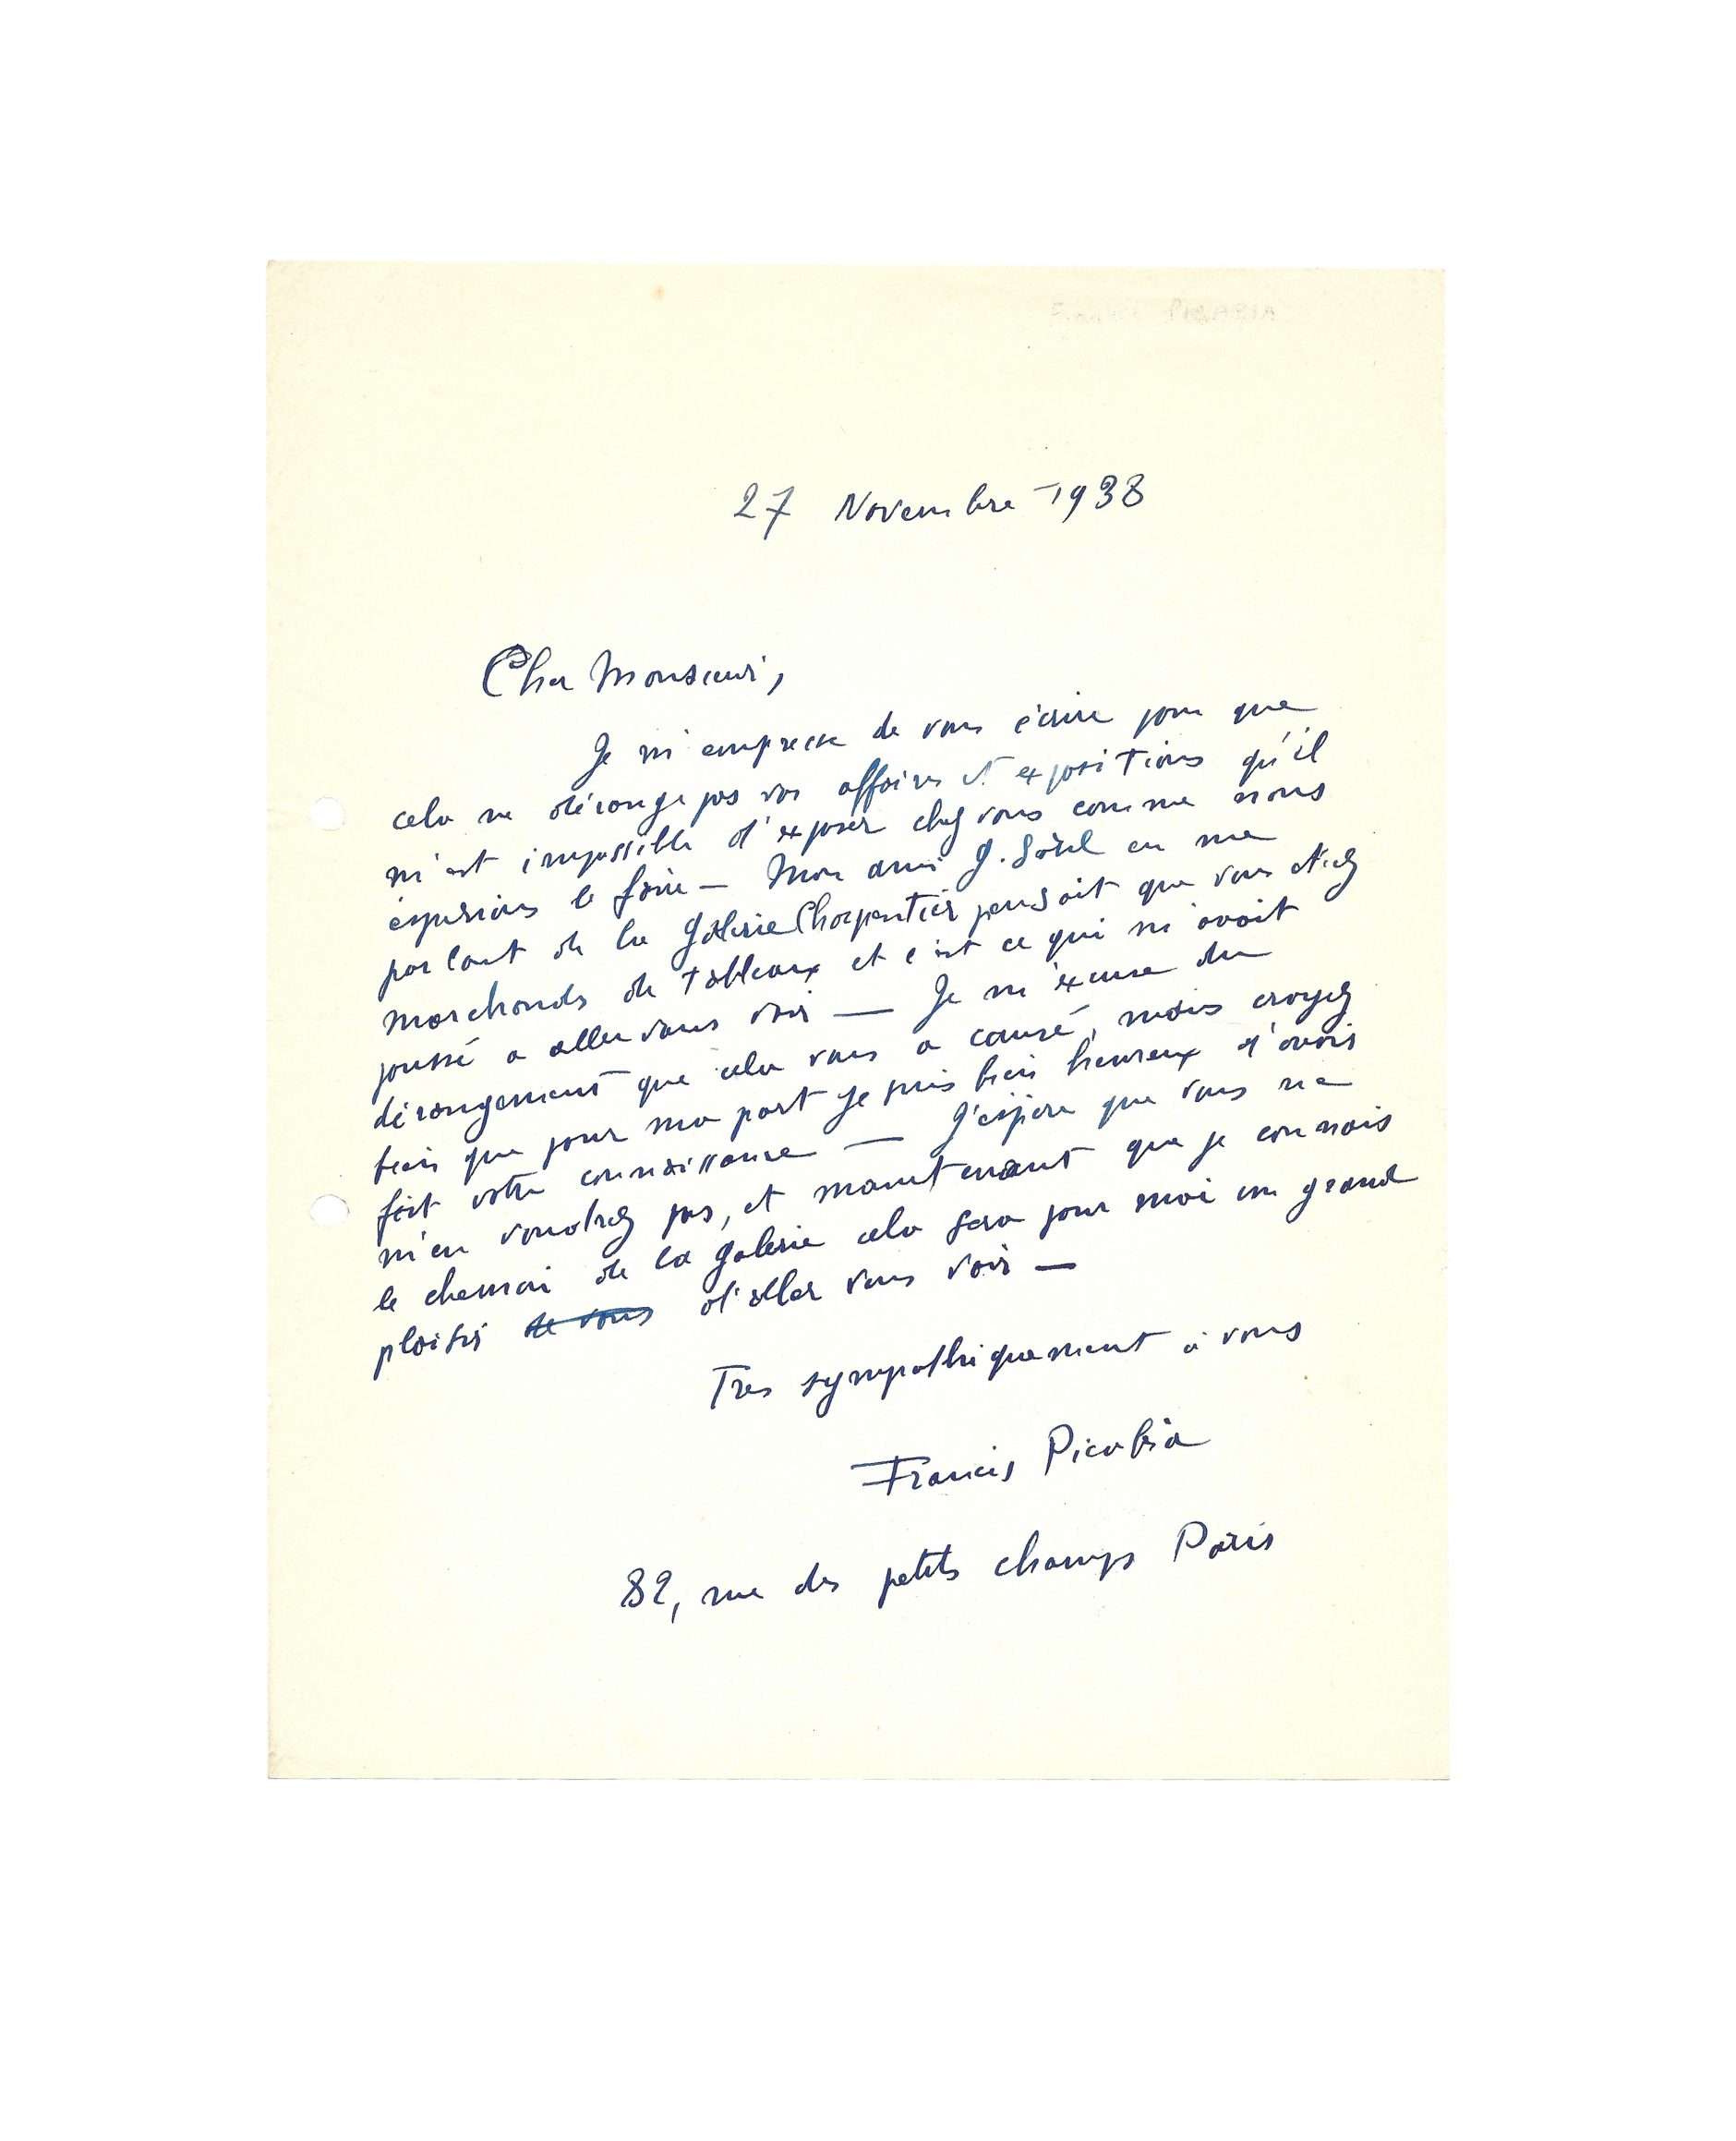 Francis PICABIA
27 Novembre 1938
Cher Monsieur,
Je m'empresse de vous écrire pour que
cela ne dérange pas vos affaires et expositions qu'il
m'est impossible d'exposer chez vous comme nous
éspérions le faire — Mon ami G. en me
parlant de la Galerie Charpentier pensait que vous etiez
marchands de tableaux et c'est ce qui m'avait
poussé a aller vous voir — Je m'excuse du
dérangement que cela vous a causé, mais croyez
bien que pour ma part je suis bien heureux d'avoir
fait votre connaissance — J'espere que vous ne
m'en voudrez pas, et maintenant que je connais
le chemin de la Galerie cela sera pour moi un grand
plaisir de vous d'aller vous voir —
Tres sympathiquement à vous
Francis Picabia
82, rue des petits champs Paris